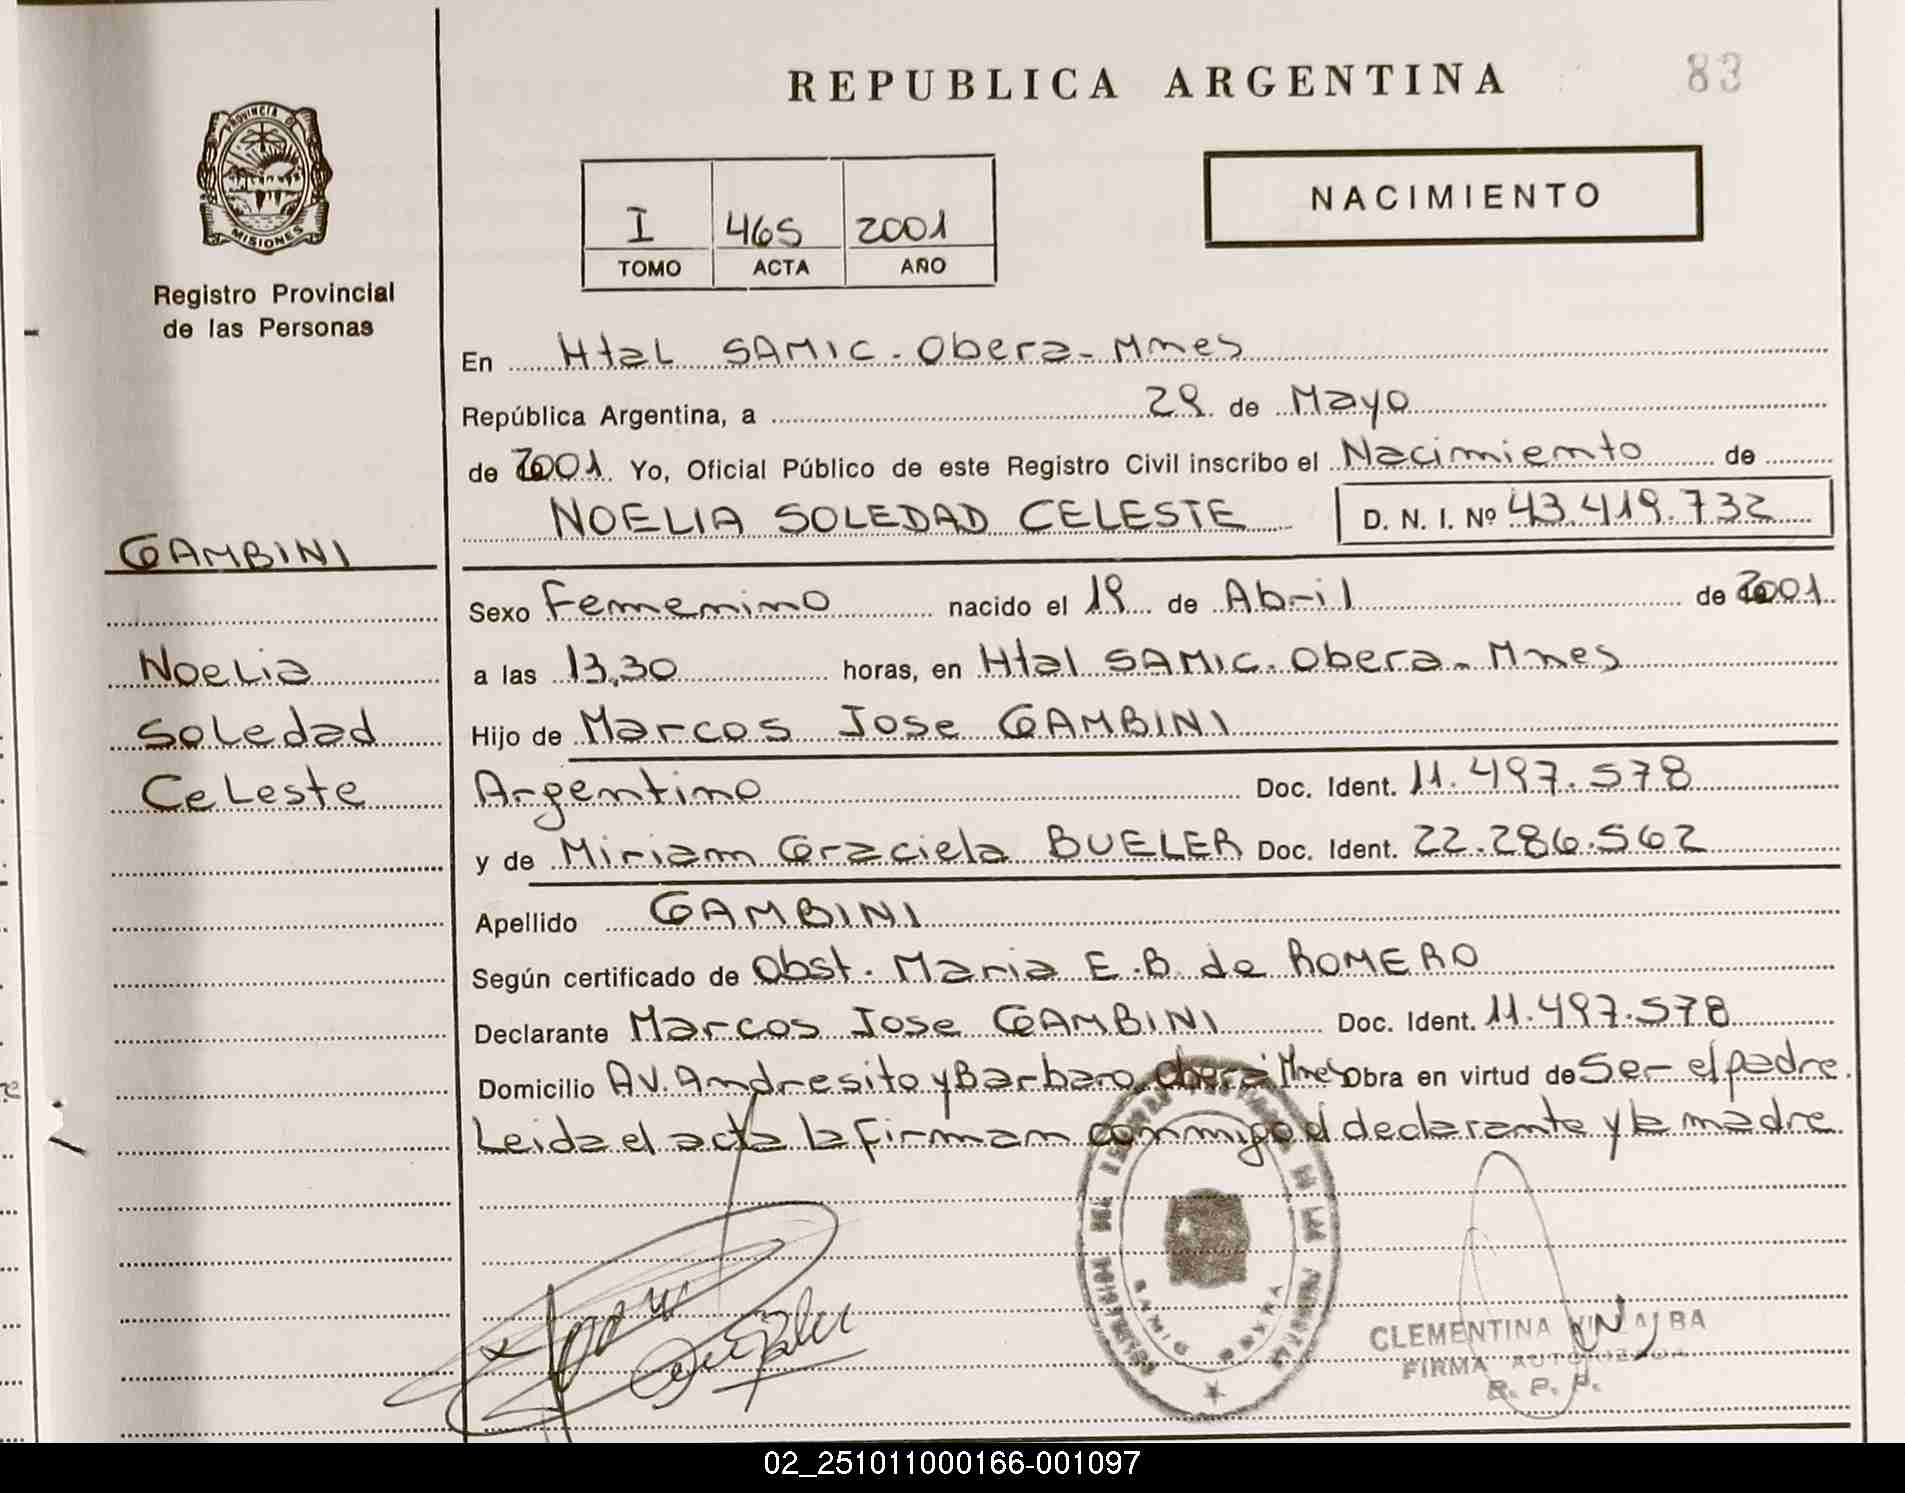 REPUBLICA ARGENTINA
83
PROVINCIA D
MISIONES
Registro Provincial
de las Personas
I 465 2001
TOMO ACTA AÑO
NACIMIENTO
En Htal SAMIC - Obera - Mnes
República Argentina, a 29 de Mayo
de 2001 Yo, Oficial Público de este Registro Civil inscribo el Nacimiento de
NOELIA SOLEDAD CELESTE D. N. I. Nº 43.419.732
GAMBINI
Noelia
Soledad
Celeste
Sexo Femenino nacido el 19 de Abril de 2001
a las 13,30 horas, en Htal SAMIC - Obera - Mnes
Hijo de Marcos Jose GAMBINI
Argentino Doc. Ident. 11.497.578
y de Miriam Graciela BUELER Doc. Ident. 22.286.562
Apellido GAMBINI
Según certificado de Obst. Maria E.B. de ROMERO
Declarante Marcos Jose GAMBINI Doc. Ident. 11.497.578
Domicilio AV. Andresito y Barbaro Obera Mnes Obra en virtud de Ser el padre.
Leida el acta la firman conmigo el declarante y la madre
CLEMENTINA
FIRMA AUTORIZADA
R. P. P.
02_251011000166-001097